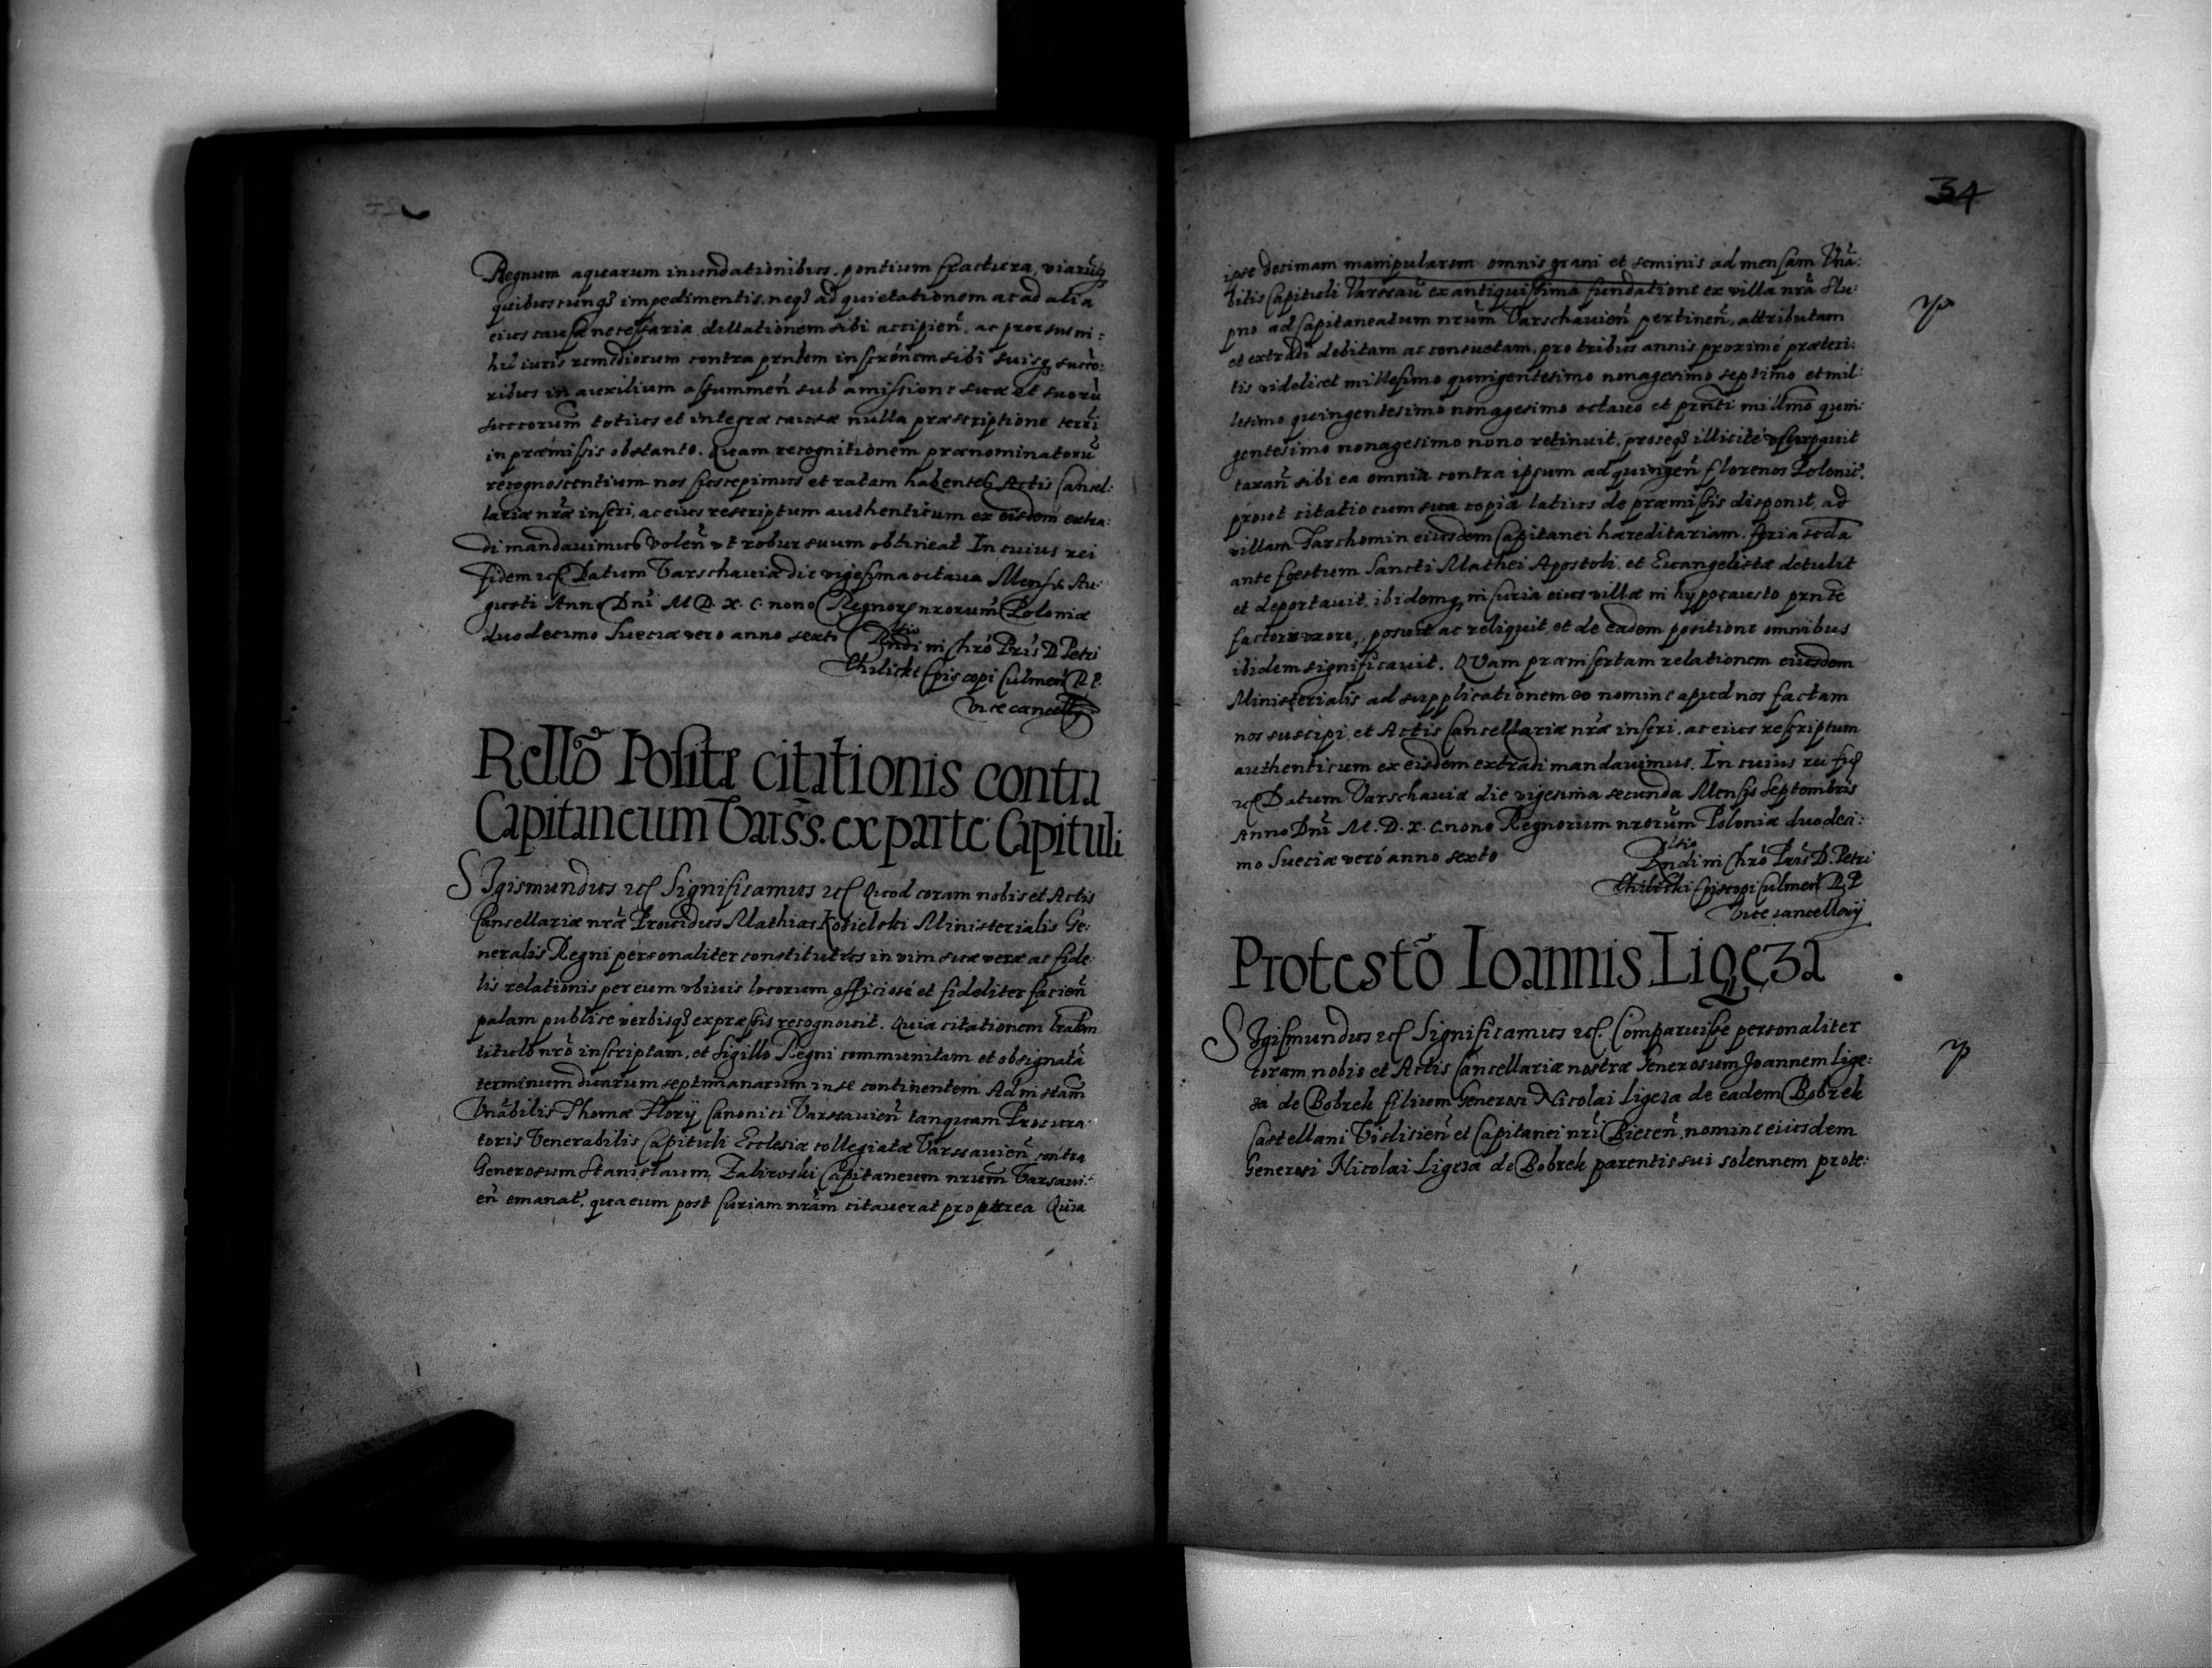 Regnum aquarum inundationibus, pontium fractura, viarūq
quibuscunqȝ impedimentis, neqȝ ad quietationem ac ad alia
eius causæ necessaria dillationem sibi accipien̄, ac prorsus ni:
hil iuris remediorum contra prn̄tem inscrōnem sibi suisq succō:
ribus in auxilium assummen̄ sub amissione suæ et suorū
succcorum̄ totius et integræ causæ nulla præscriptione terri
in præmissis obstante. Quam recognitionem prænominatorū
recognoscentium nos suscepimus et ratam habentes Actis Cancel:
lariæ nrǣ inseri, ac eius rescriptum authenticum ex eisdem extra:
di mandauimus volen̄ vt robur suum obtineat In cuius rei
fidem etc Datum Varschauiæ die vigesima octaua Mensis Au:
gusti Anno Dnī M D. X. C. nono Regnorȝ nrorum̄ Poloniæ
duodecimo Sueciæ vero anno sexto Rndi in Chrō Pris D Petri
Thilicki Episcopi Culmen R. P.
Vicecancellȳ
Rellō Positæ citationis contra
Capitaneum Varss̄. ex parte Capituli
SIgismundus etc Significamus etc Quod coram nobis et Actis
Cancellariæ nrǣ Prouidus Mathias Kobielski Ministerialis Ge:
neralis Regni personaliter constitutus in vim suæ veræ ac fide:
lis relationis per eum vbiuis locorum officiosé et fideliter facien̄
palam publice verbisqȝ expræssis recognouit. Quia citationem
titulo nrō inscriptam, et Sigillo Regni communitam et obsignatā
terminum duarum septimanarum in se continentem Ad instam̄
Vnābilis Thomæ Canonici Varssauien̄ tanquam Procura:
toris Venerabilis Capituli Ecclesiæ collegiatæ Varssauien̄ contra
Generosum Stanislaum Zaliwski Capitaneum nrum̄ Varsaui:
en̄ emanat̄, qua eum post Curiam nrām citauerat propterea Quia
34
ipse decimam manipularem omnis grani et seminis ad mensam Vnā:
bilis Capituli Varssau̅ ex antiquissima fundatione ex villa nrā Slu:
pno ad Capitaneatum nrūm Varschauien̄ pertinen̄, attributam
et extradi debitam ac consuetam, pro tribus annis proximé præteri:
tis videlicet millesimo quingentesimo nonagesimo septimo et mil:
lesimo quingentesimo nonagesimo octauo et prn̄ti millmo quin:
gentesimo nonagesimo nono retinuit, proseqȝ illicité vsurpauit
taxan̄ sibi ea omnia contra ipsum ad quingen̄ florenos Polonic̄.
prout citatio cum sua copia latius de præmissis disponit, ad
villam Tarchomin eiusdem Capitanei hæreditariam, feria scda
ante foestum Sancti Mathei Apostoli et Euangelistæ detulit
et deportauit, ibidemq in Curia eius villæ in hypocausto prnte
factoris vxore, posuit ac reliquit, et de eadem positione omnibus
ibidem significauit. QVam præinsertam relationem eiusdem
Ministerialis ad supplicationem eo nomine apud nos factam
nos suscipi, et Actis Cancellariæ nrǣ inseri, ac eius rescriptum
authenticum ex eisdem extradi mandauimus. In cuius rei fid
etc Datum Varschauiæ die vigesima secunda Mensis Septembris
Anno Dnī M. D. X. C. nono Regnorum nrorum̄ Poloniæ duodeci:
mo Sueciæ veró anno sexto Rndi in Chrō Pris D. Petri
Thilicki Episcopi Culmen R. P
Vicecancellarij
Protestō Ioannis Ligęza
SIgismundus etc Significamus etc. Comparuisse personaliter
coram nobis et Actis Cancellariæ nostræ Generosum Joannem Lige:
za de Bobrek filium Generosi Nicolai Ligeza de eadem Bobrek
Castellani Vislicien̄ et Capitanei nrī Biecen̄, nomine eiusdem
Generosi Nicolai Ligeza de Bobrek parentis sui solennem prote: